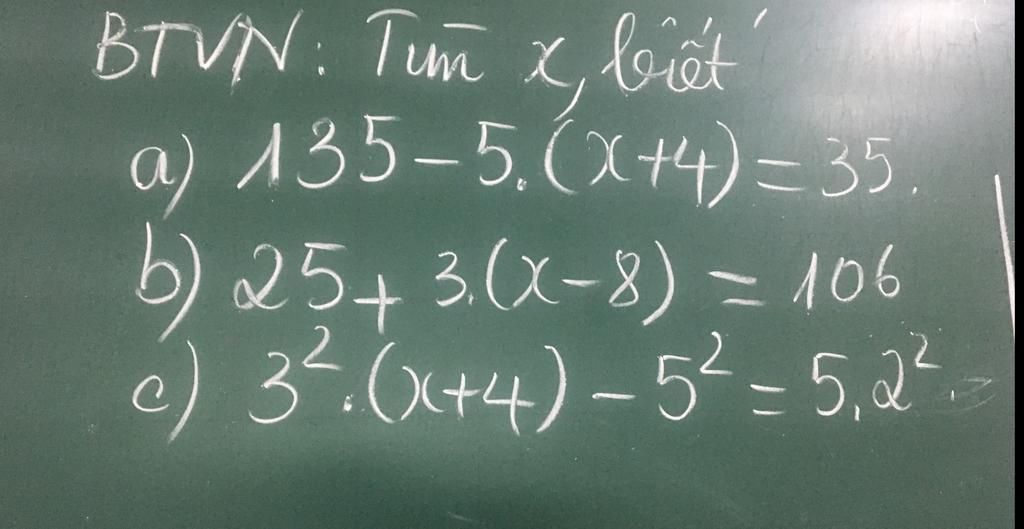 BTVN: Tìm x, biết
a) 135 - 5.(x+4) = 35.
b) 25 + 3.(x-8) = 106
c) 3².(x+4) - 5² = 5.2².